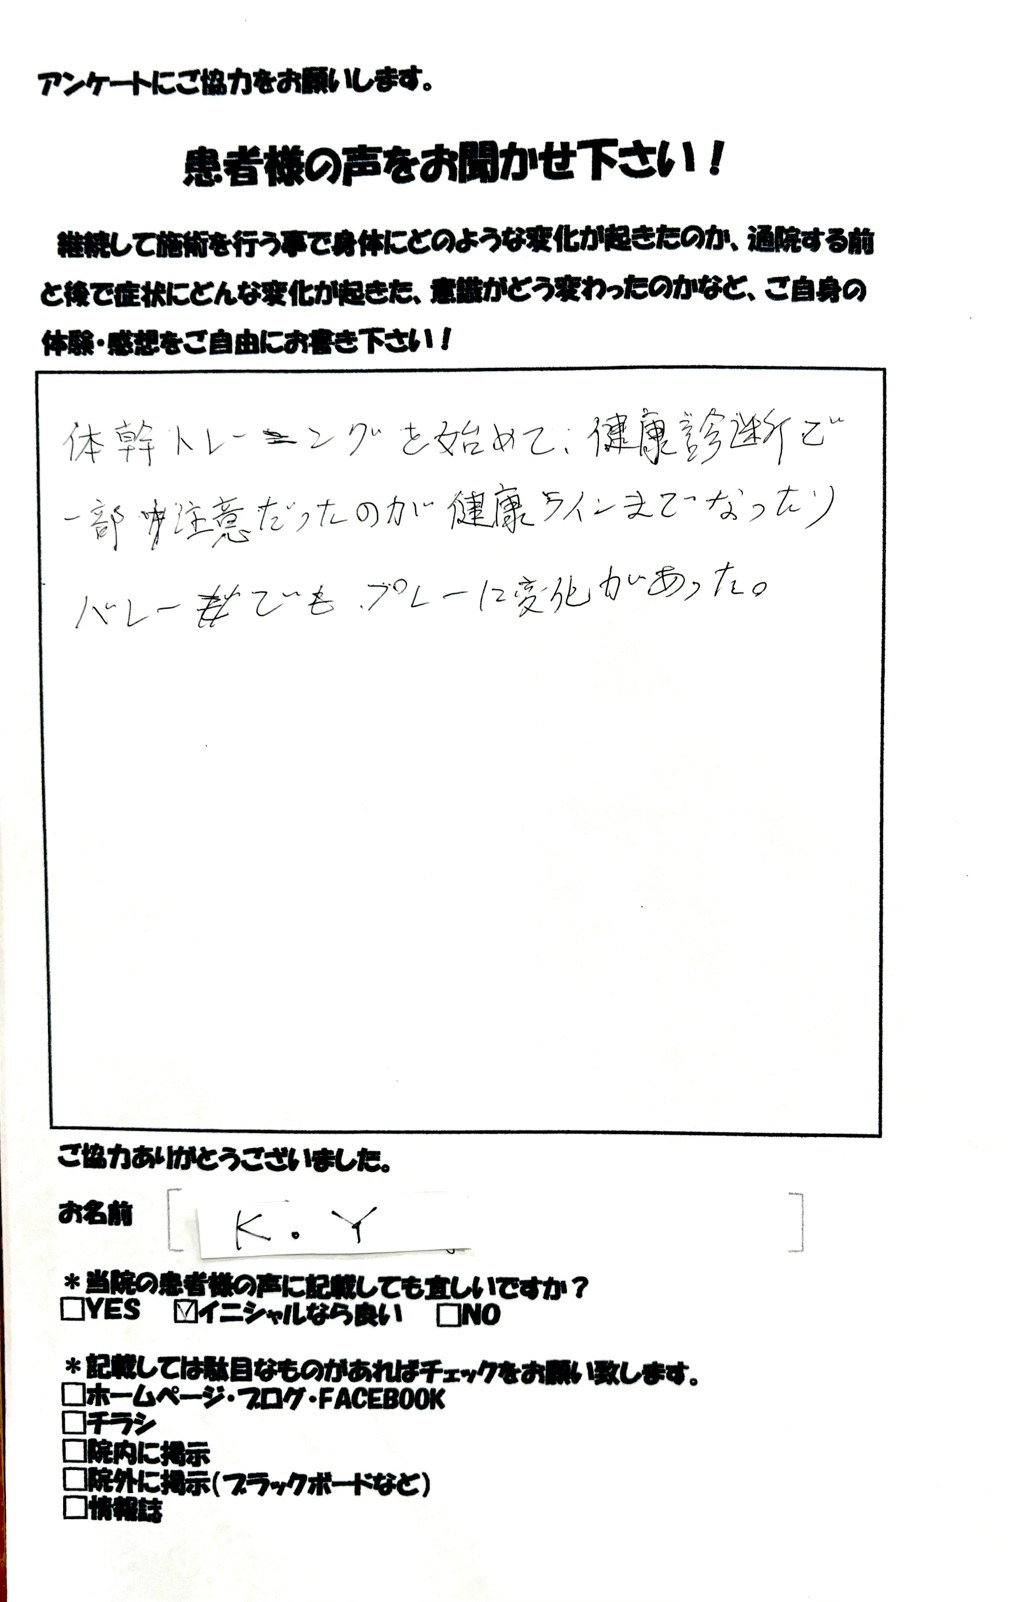 アンケートにご協力をお願いします。
患者様の声をお聞かせ下さい！
継続して施術を行う事で身体にどのような変化が起きたのか、通院する前
と後で症状にどんな変化が起きた、意識がどう変わったのかなど、ご自身の
体験・感想をご自由にお書き下さい！
体幹トレーニングを始めて、健康診断で
一部 注意だったのが健康ラインまでなったり
バレーでもプレーに変化があった。
ご協力ありがとうございました。
お名前 K.Y
＊当院の患者様の声に記載しても宜しいですか？
□YES ☑イニシャルなら良い □NO
＊記載しては駄目なものがあればチェックをお願い致します。
□ホームページ・ブログ・FACEBOOK
□チラシ
□院内に掲示
□院外に掲示(ブラックボードなど)
□情報誌